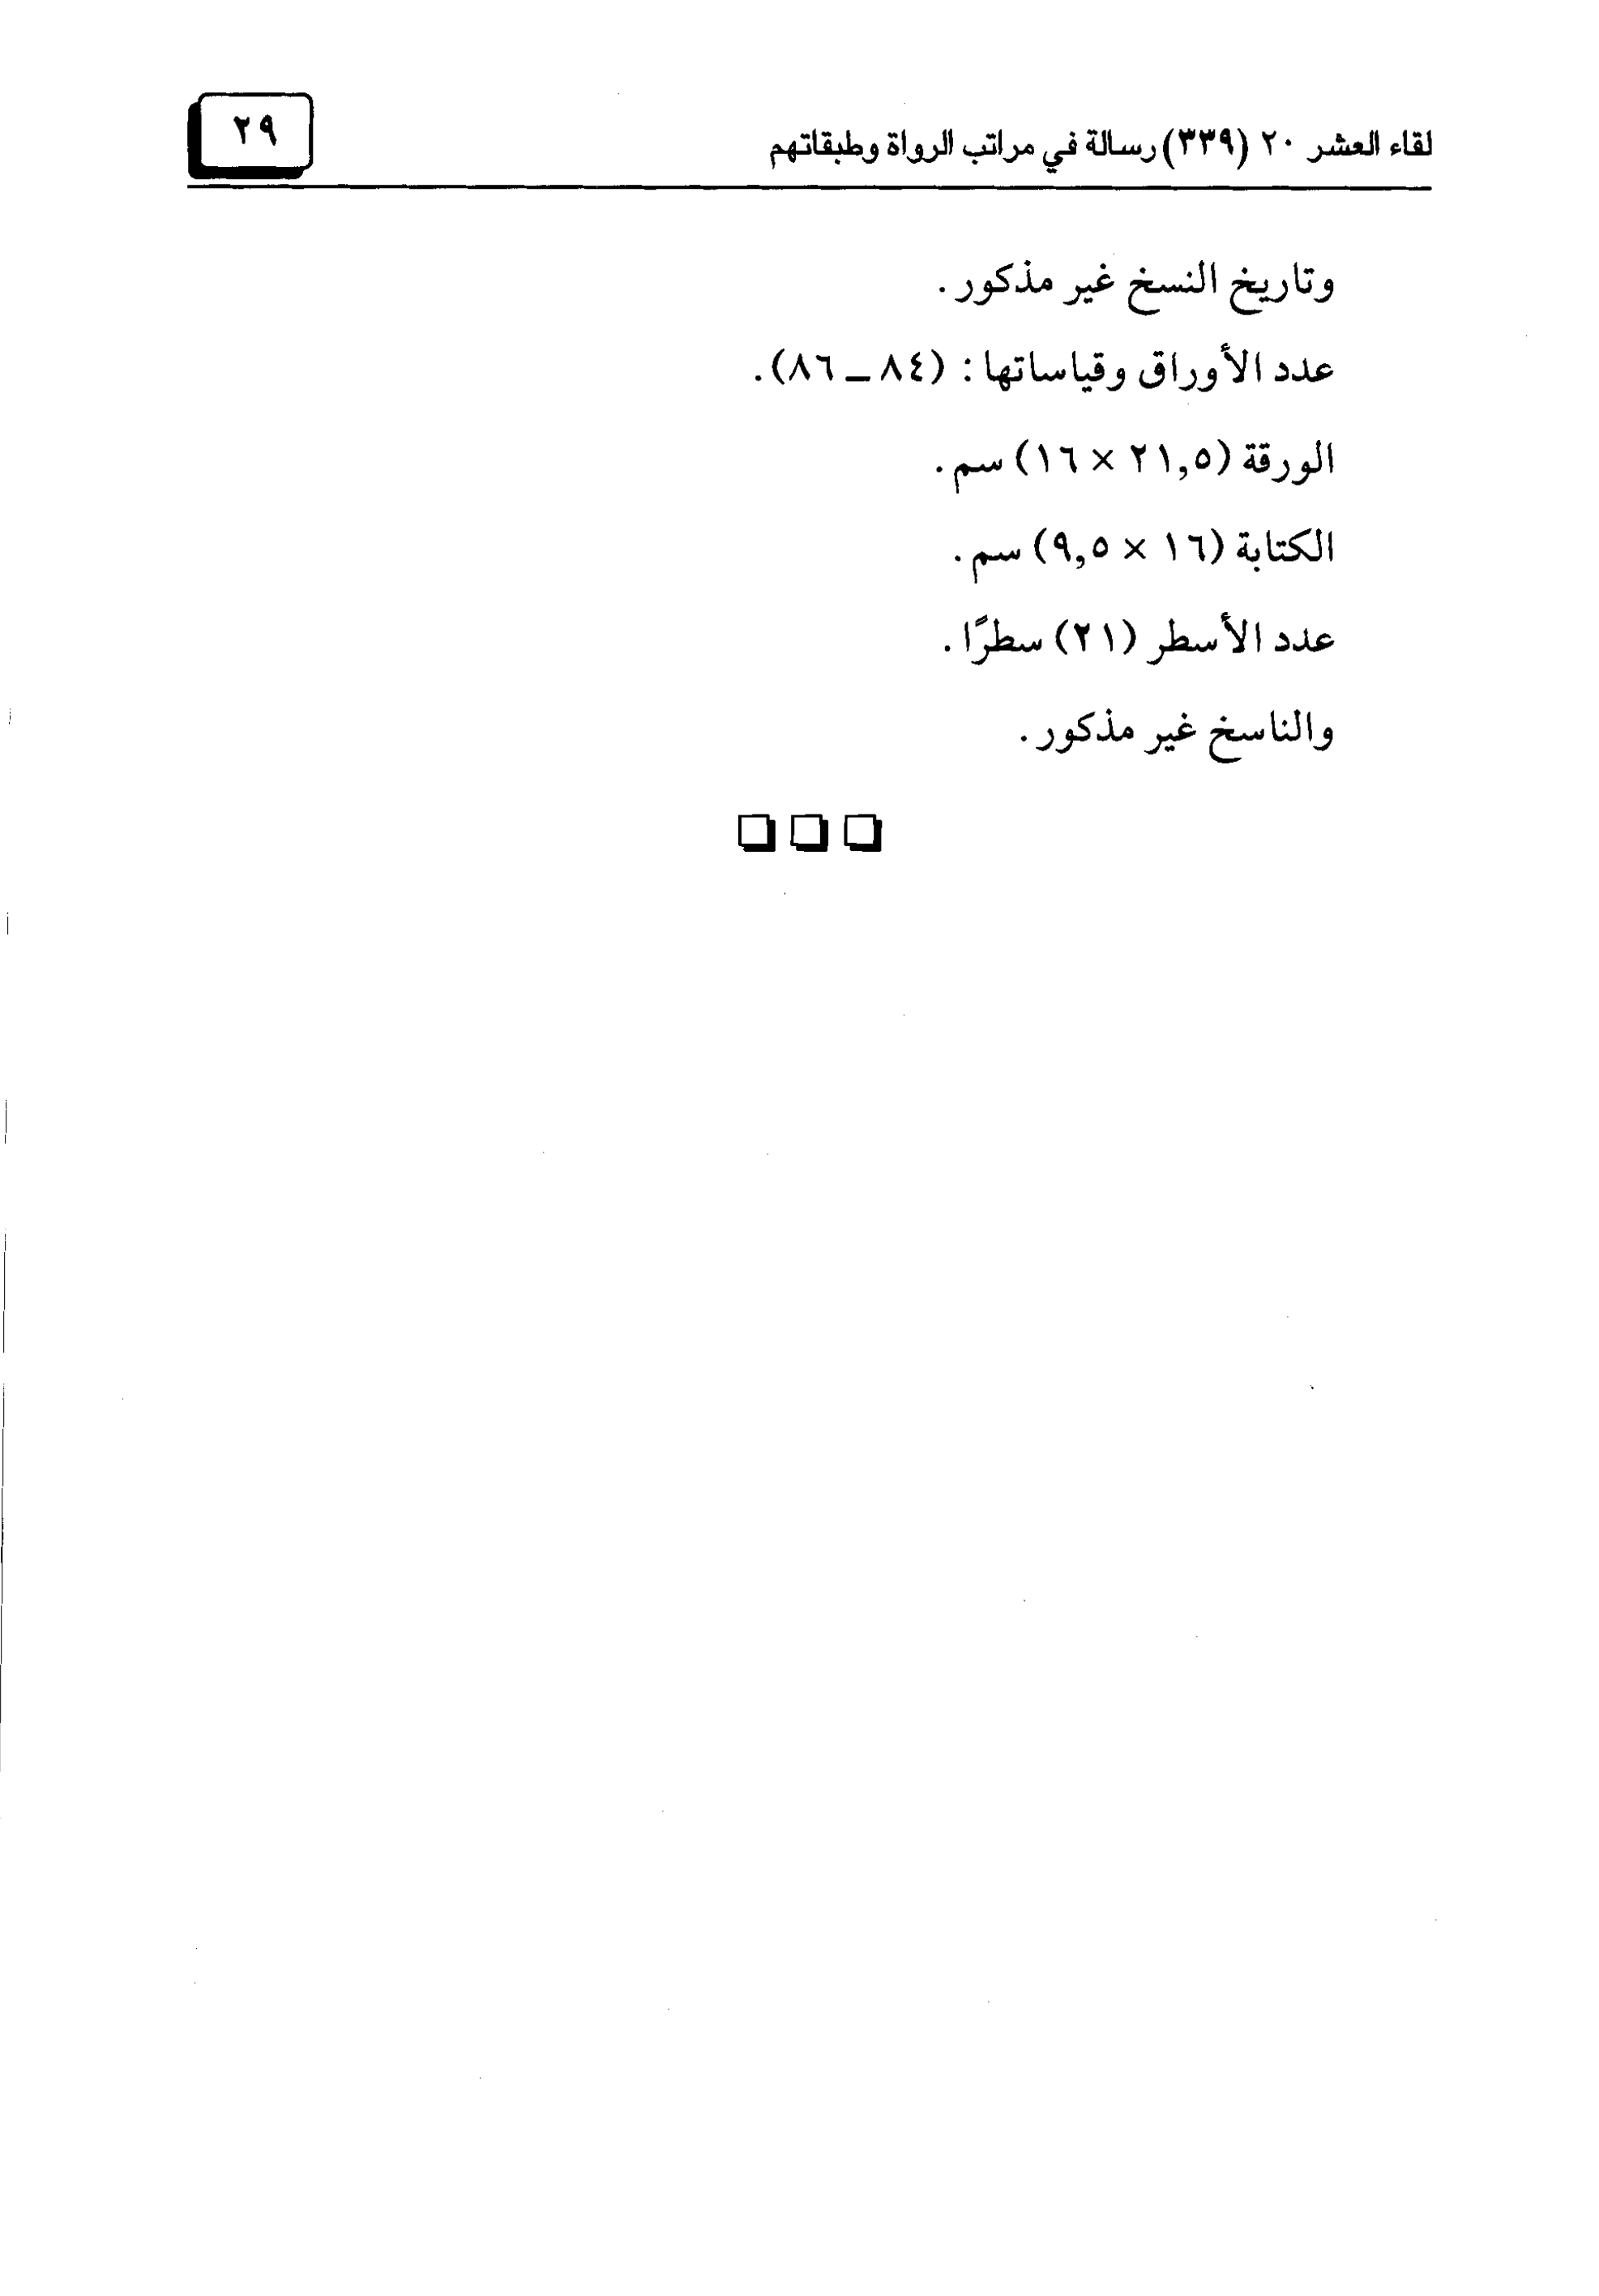 لقاء العشر ٢٠ (٣٣٩) رسالة في مراتب الرواة وطبقاتهم
٢٩
وتاريخ النسخ غير مذكور.
عدد الأوراق وقياساتها: (٨٤ ــ ٨٦).
الورقة (٢١,٥ × ١٦) سم.
الكتابة (١٦ × ٩,٥) سم.
عدد الأسطر (٢١) سطرًا.
والناسخ غير مذكور.